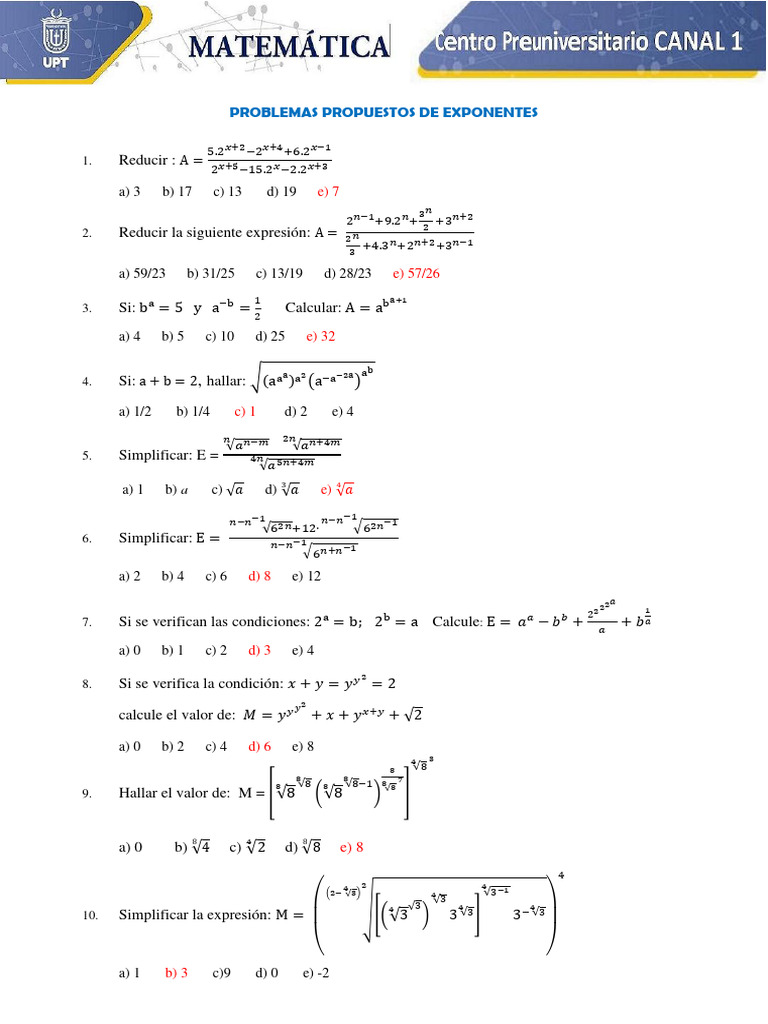 UPT
MATEMÁTICA
Centro Preuniversitario CANAL 1
PROBLEMAS PROPUESTOS DE EXPONENTES
1. Reducir : A = (5.2^(x+2)−2^(x+4)+6.2^(x−1))/(2^(x+5)−15.2^x−2.2^(x+3))
a) 3 b) 17 c) 13 d) 19 e) 7
2. Reducir la siguiente expresión: A = (2^(n−1)+9.2^n+3^n/2+3^(n+2))/(2^n/3+4.3^n+2^(n+2)+3^(n−1))
a) 59/23 b) 31/25 c) 13/19 d) 28/23 e) 57/26
3. Si: b^a = 5 y a^(−b) = 1/2 Calcular: A = a^(b^(a+1))
a) 4 b) 5 c) 10 d) 25 e) 32
4. Si: a + b = 2, hallar: √((a^(a^a))^(a^2) (a^(−a^(−2a)))^(a^b))
a) 1/2 b) 1/4 c) 1 d) 2 e) 4
5. Simplificar: E = (ⁿ√(a^(n−m)) ²ⁿ√(a^(n+4m)))/(⁴ⁿ√(a^(5n+4m)))
a) 1 b) a c) √a d) ∛a e) ∜a
6. Simplificar: E = (^(n−n^(−1))√(6^(2n))+12. ^(n−n^(−1))√(6^(2n^(−1))))/(^(n−n^(−1))√(6^(n+n^(−1))))
a) 2 b) 4 c) 6 d) 8 e) 12
7. Si se verifican las condiciones: 2^a = b; 2^b = a Calcule: E = a^a − b^b + 2^(2^(2^(2^a)))/a + b^(1/a)
a) 0 b) 1 c) 2 d) 3 e) 4
8. Si se verifica la condición: x + y = y^(y^2) = 2
calcule el valor de: M = y^(y^(y^2)) + x + y^(x+y) + √2
a) 0 b) 2 c) 4 d) 6 e) 8
9. Hallar el valor de: M = [⁸√8^(⁸√8) (⁸√8^(⁸√8−1))^(8/⁸√8^7)]^(∜8^3)
a) 0 b) ⁸√4 c) ∜2 d) ⁸√8 e) 8
10. Simplificar la expresión: M = (^((2−∜3)^2)√([(∜3^(√3))^(∜3) 3^(∜3)]^(∜(3^(−1))) 3^(−∜3)))^4
a) 1 b) 3 c)9 d) 0 e) -2